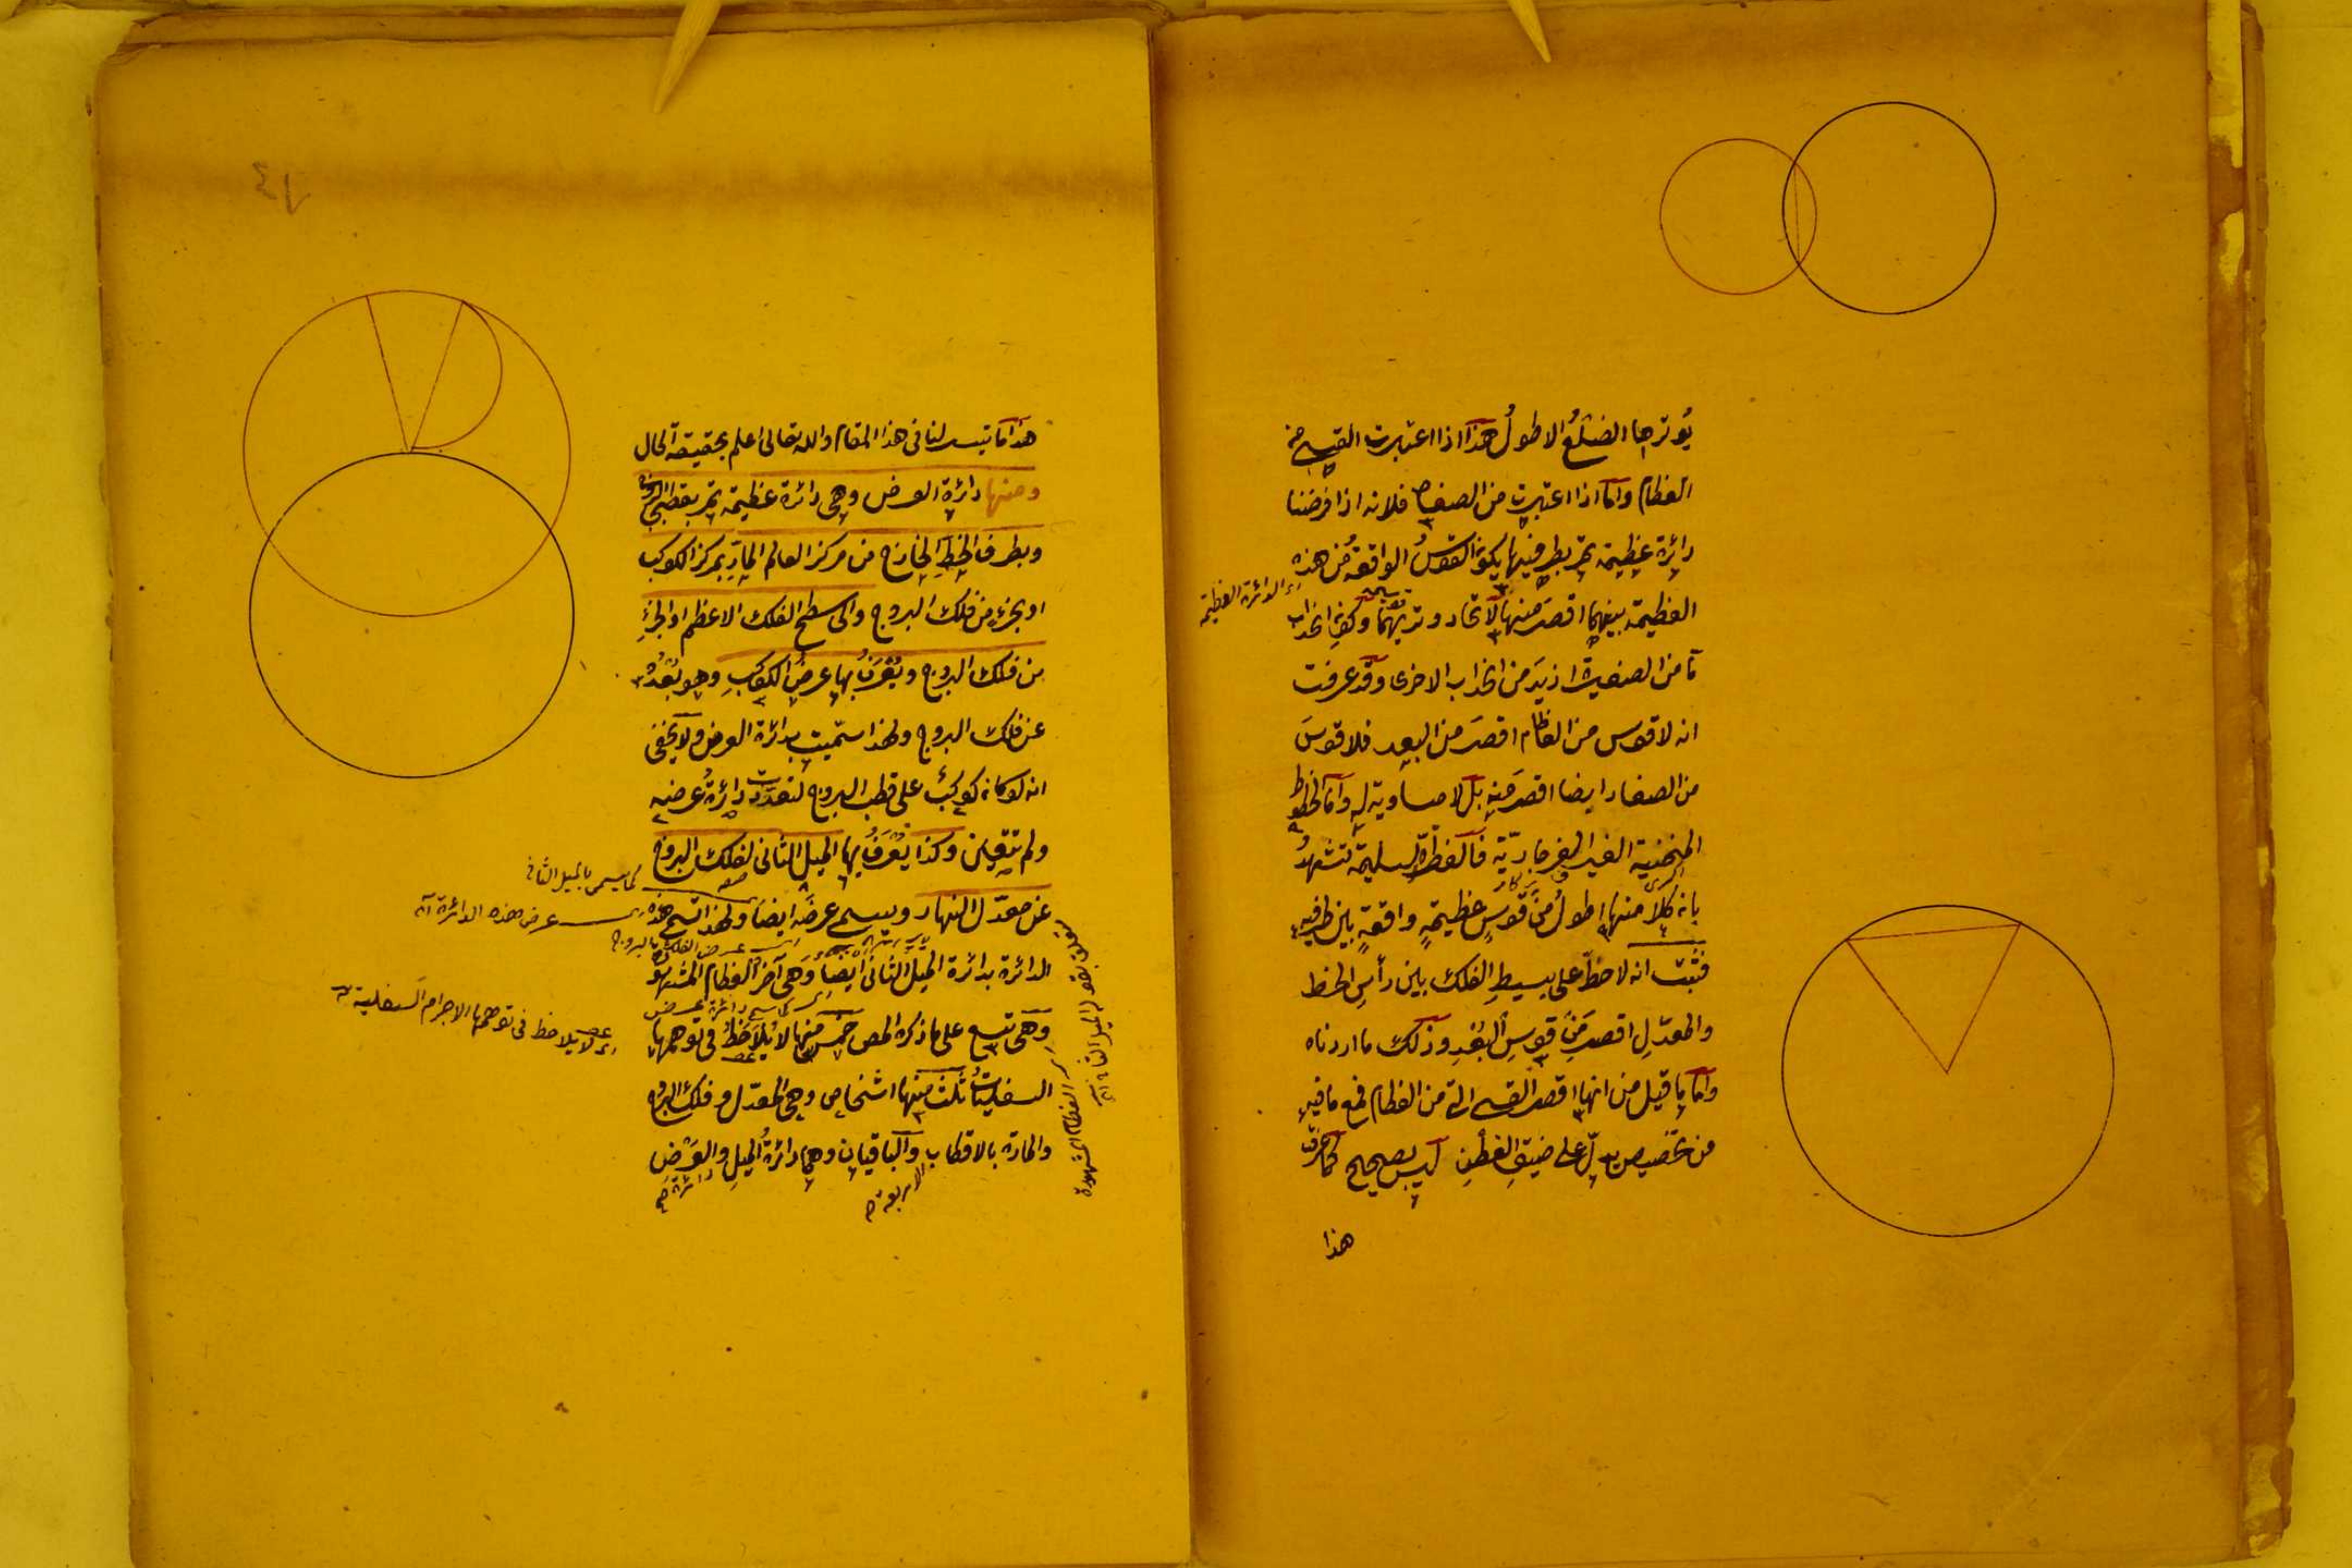 يُوترها الضلعُ الاطولُ هذا اذا اعتبرت القسي من
العظام واما اذا اعتبرت من الصغار فلانه اذا فرضنا
دائرة عظيمة تمر بطرفيها يكون القوسُ الواقعة من هذه
الدائرة العظيمة
العظيمة بينهما اقصر منها لاتحاد وتريهما وكون انحداب
ما من الصغيرة ازيد من انحداب الاخرى وقد عرفت
انه لا قوس من العظام اقصر من البعد فلا قوسَ
من الصغار ايضا اقصر منه بل لا مساوية له واما الخطوط
المنحنية الغير الفرجارية فالفطرة السليمة تشهد
بانه كلا منها اطول من قوسٍ عظيمةٍ واقعةٍ بين طرفيه
فثبت انه لا خط على بسيط الفلك بين رأس الخط
والمعدل اقصر من قوس البُعْدِ وذلك ما اردناه
واما ما قيل من انها اقصر القسي التي من العظام فمع ما فيه
من تخصيص يدل على ضيق العطن ليس بصحيح كما عرفت
هذا
هذا ما تيسر لنا في هذا المقام والله تعالى اعلم بحقيقة الحال
ومنها دائرة العرض وهي دائرة عظيمة تمر بقطبي البروج
وبطرف الخط الخارج من مركز العالم المار بمركز الكوكب
او بجزء من فلك البروج والى سطح الفلك الاعظم او الجزء
من فلك البروج ويُعْرَفُ بها عرض الكوكب وهو بُعْدُه
عن فلك البروج ولهذا سميت بدائرة العرض ولا يخفى
انه لو كان كوكبٌ على قطب البروج لتعددت دائرةُ عرضه
ولم تتعين وكذا يُعْرَفُ بها الميل الثاني لفلك البروج
كما يسمى بالميل الثاني
عن معدل النهار ويسمى عرضه ايضا ولهذا تسمى هذه
عرض هذه الدائرة
عرض الفلك البروج
الدائرة بدائرة الميل الثاني ايضا وهي آخر العظام المشهورة
كما تسمى دائرة عرض
وهي تسع على ما ذكره المص خمس منها لا يُلاحَظُ في توهمها
اى لا يلاحظ في توهمها الاجرام السفلية
السفليات ثلث منها اشخاص وهي المعدل وفلك البروج
والمارة بالاقطاب والباقيان وهما دائرة الميل والعرض
الاربعة
دائرة
متعلق بقوله الميل الثاني
العظام المشهورة